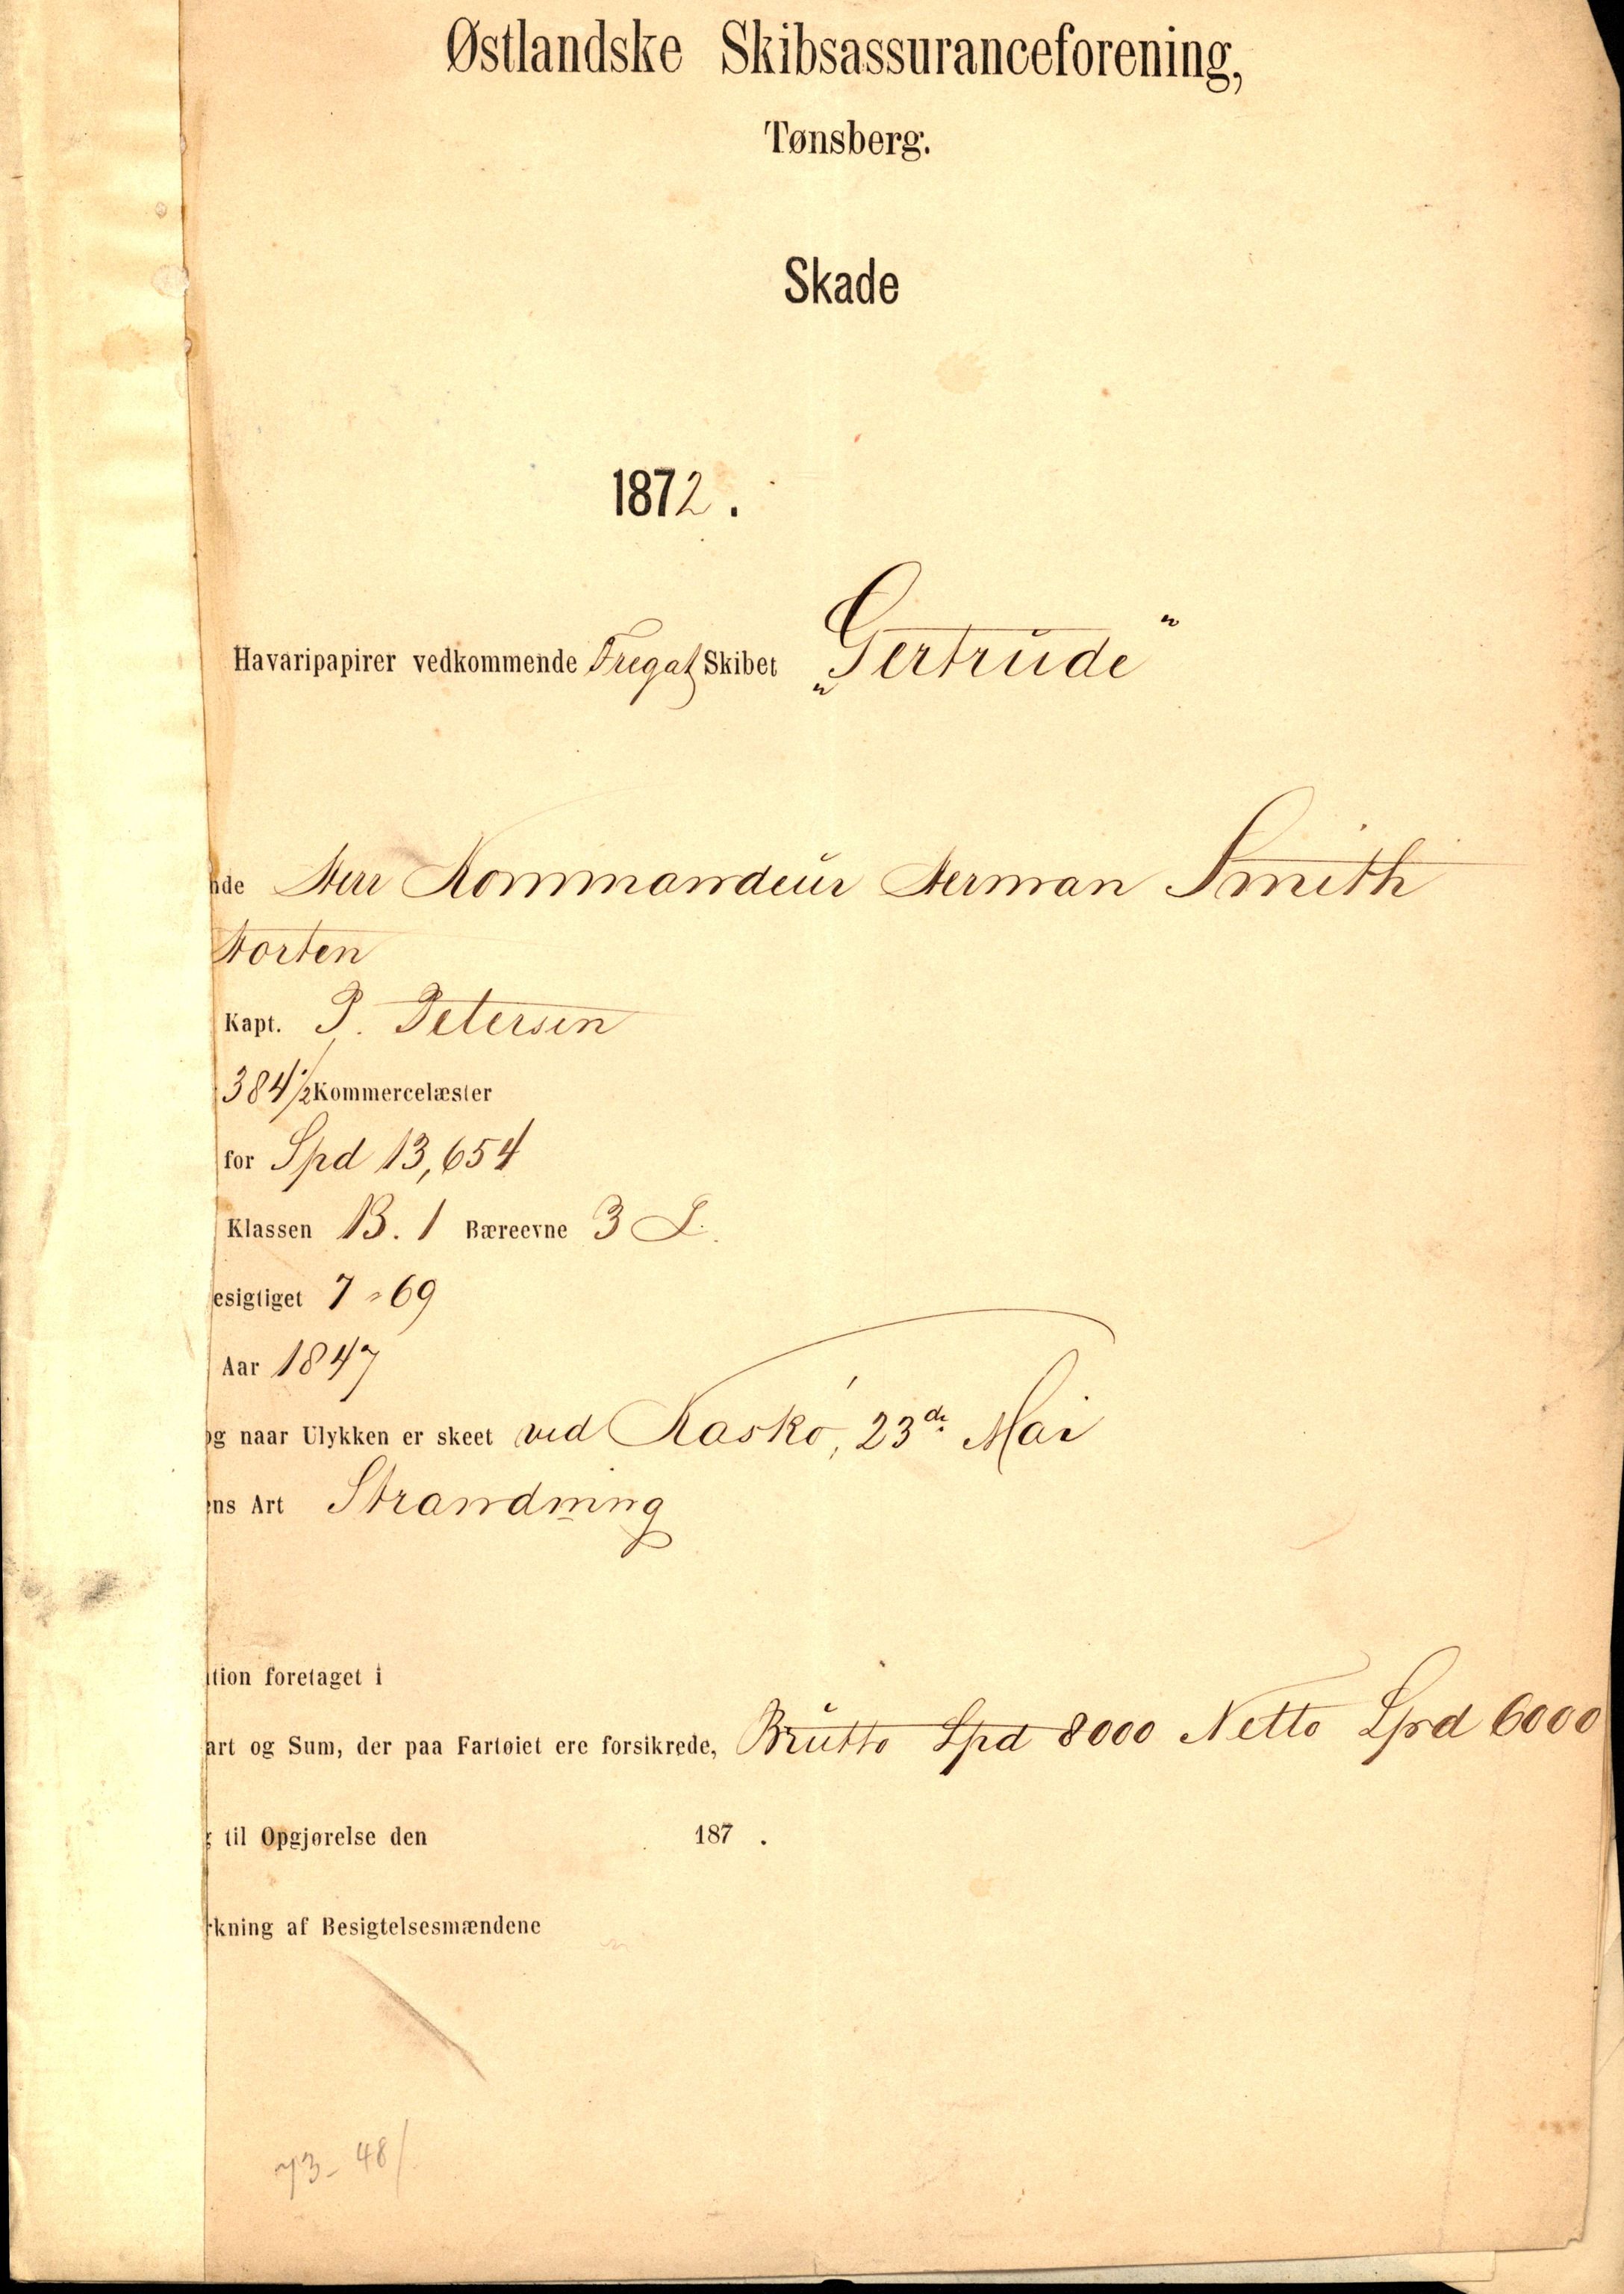 Østlandske Skibsassuranceforening,
Tønsberg.
Skade
1872.
Havaripapirer vedkommende Fregat Skibet „Gertrude"
nde Herr Kommandeur Herman Smith
Horten
Kapt. P. Petersen
384½ Kommercelæster
for Spd 13,654
Klassen B. 1 Bæreevne 3 L.
esigtiget 7-69
Aar 1847
og naar Ulykken er skeet ved Kaskö, 23de Mai
ens Art Strandning
tion foretaget i
art og Sum, der paa Fartøiet ere forsikrede, Brutto Spd 8000 Netto Spd 6000
g til Opgjørelse den 187 .
rkning af Besigtelsesmændene
73-48/